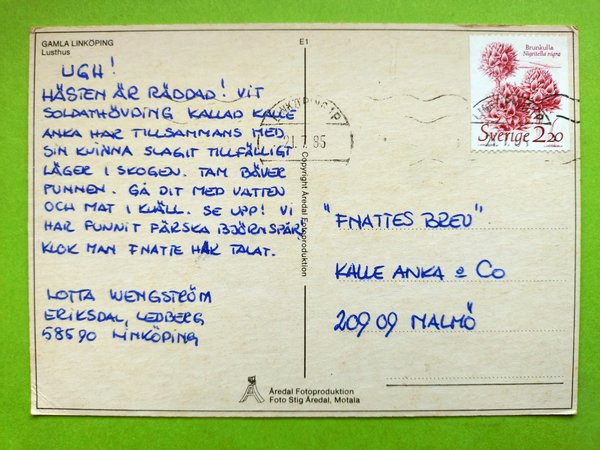 GAMLA LINKÖPING
Lusthus
E1
UGH!
HÄSTEN ÄR RÄDDAD! VIT
SOLDATHÖVDING KALLAD KALLE
ANKA HAR TILLSAMMANS MED
SIN KVINNA SLAGIT TILLFÄLLIGT
LÄGER I SKOGEN. TAM BÄVER
FUNNEN. GÅ DIT MED VATTEN
OCH MAT I KVÄLL. SE UPP! VI
HAR FUNNIT FÄRSKA BJÖRNSPÅR.
KLOK MAN FNATTE HAR TALAT.
LOTTA WENGSTRÖM
ERIKSDAL, LEDBERG
58590 LINKÖPING
Copyright Åredal Fotoproduktion
LINKÖPING
21.7.85
Brunkulla
Nigritella nigra
Sverige 2.20
"FNATTES BREV"
KALLE ANKA & CO
20909 MALMÖ
Åredal Fotoproduktion
Foto Stig Åredal, Motala